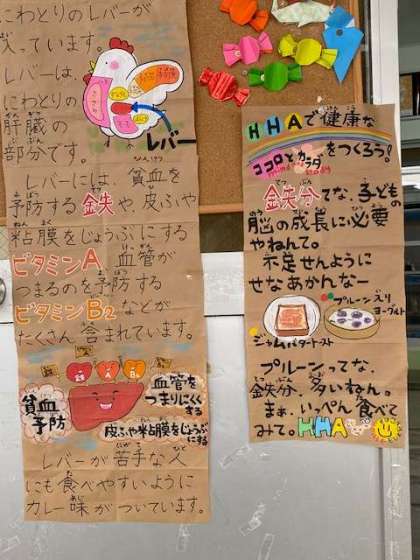 にわとりのレバーが
入っています。
レバーは、
にわとりの
肝臓の
部分です。
レバー
レバーには、貧血を
予防する鉄や、皮ふや
粘膜をじょうぶにする
ビタミンA、血管が
つまるのを予防する
ビタミンB2などが
たくさん含まれています。
貧血
予防
血管を
つまりにくく
する
皮ふや粘膜をじょうぶ
にする
レバーが苦手な人
にも食べやすいように
カレー味がついています。
HHAで健康な
ココロとカラダ
をつくろう!
鉄分てな、子どもの
脳の成長に必要
やねんて。
不足せんように
せなあかんなー
プルーン入り
ヨーグルト
ジャムバタートースト
プルーンってな、
鉄分、多いねん。
まぁ、いっぺん食べて
みて。HHA